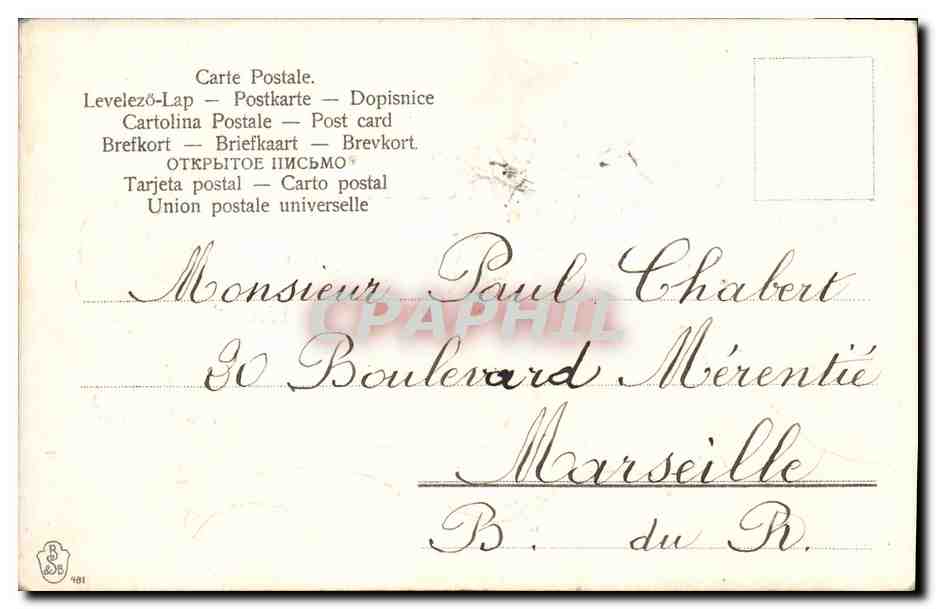 Carte Postale.
Levelező-Lap — Postkarte — Dopisnice
Cartolina Postale — Post card
Brefkort — Briefkaart — Brevkort.
ОТКРЫТОЕ ПИСЬМО
Tarjeta postal — Carto postal
Union postale universelle
Monsieur Paul Chabert
CPAPHIL
30 Boulevard Mérentié
Marseille
B. du R.
B
& B
481